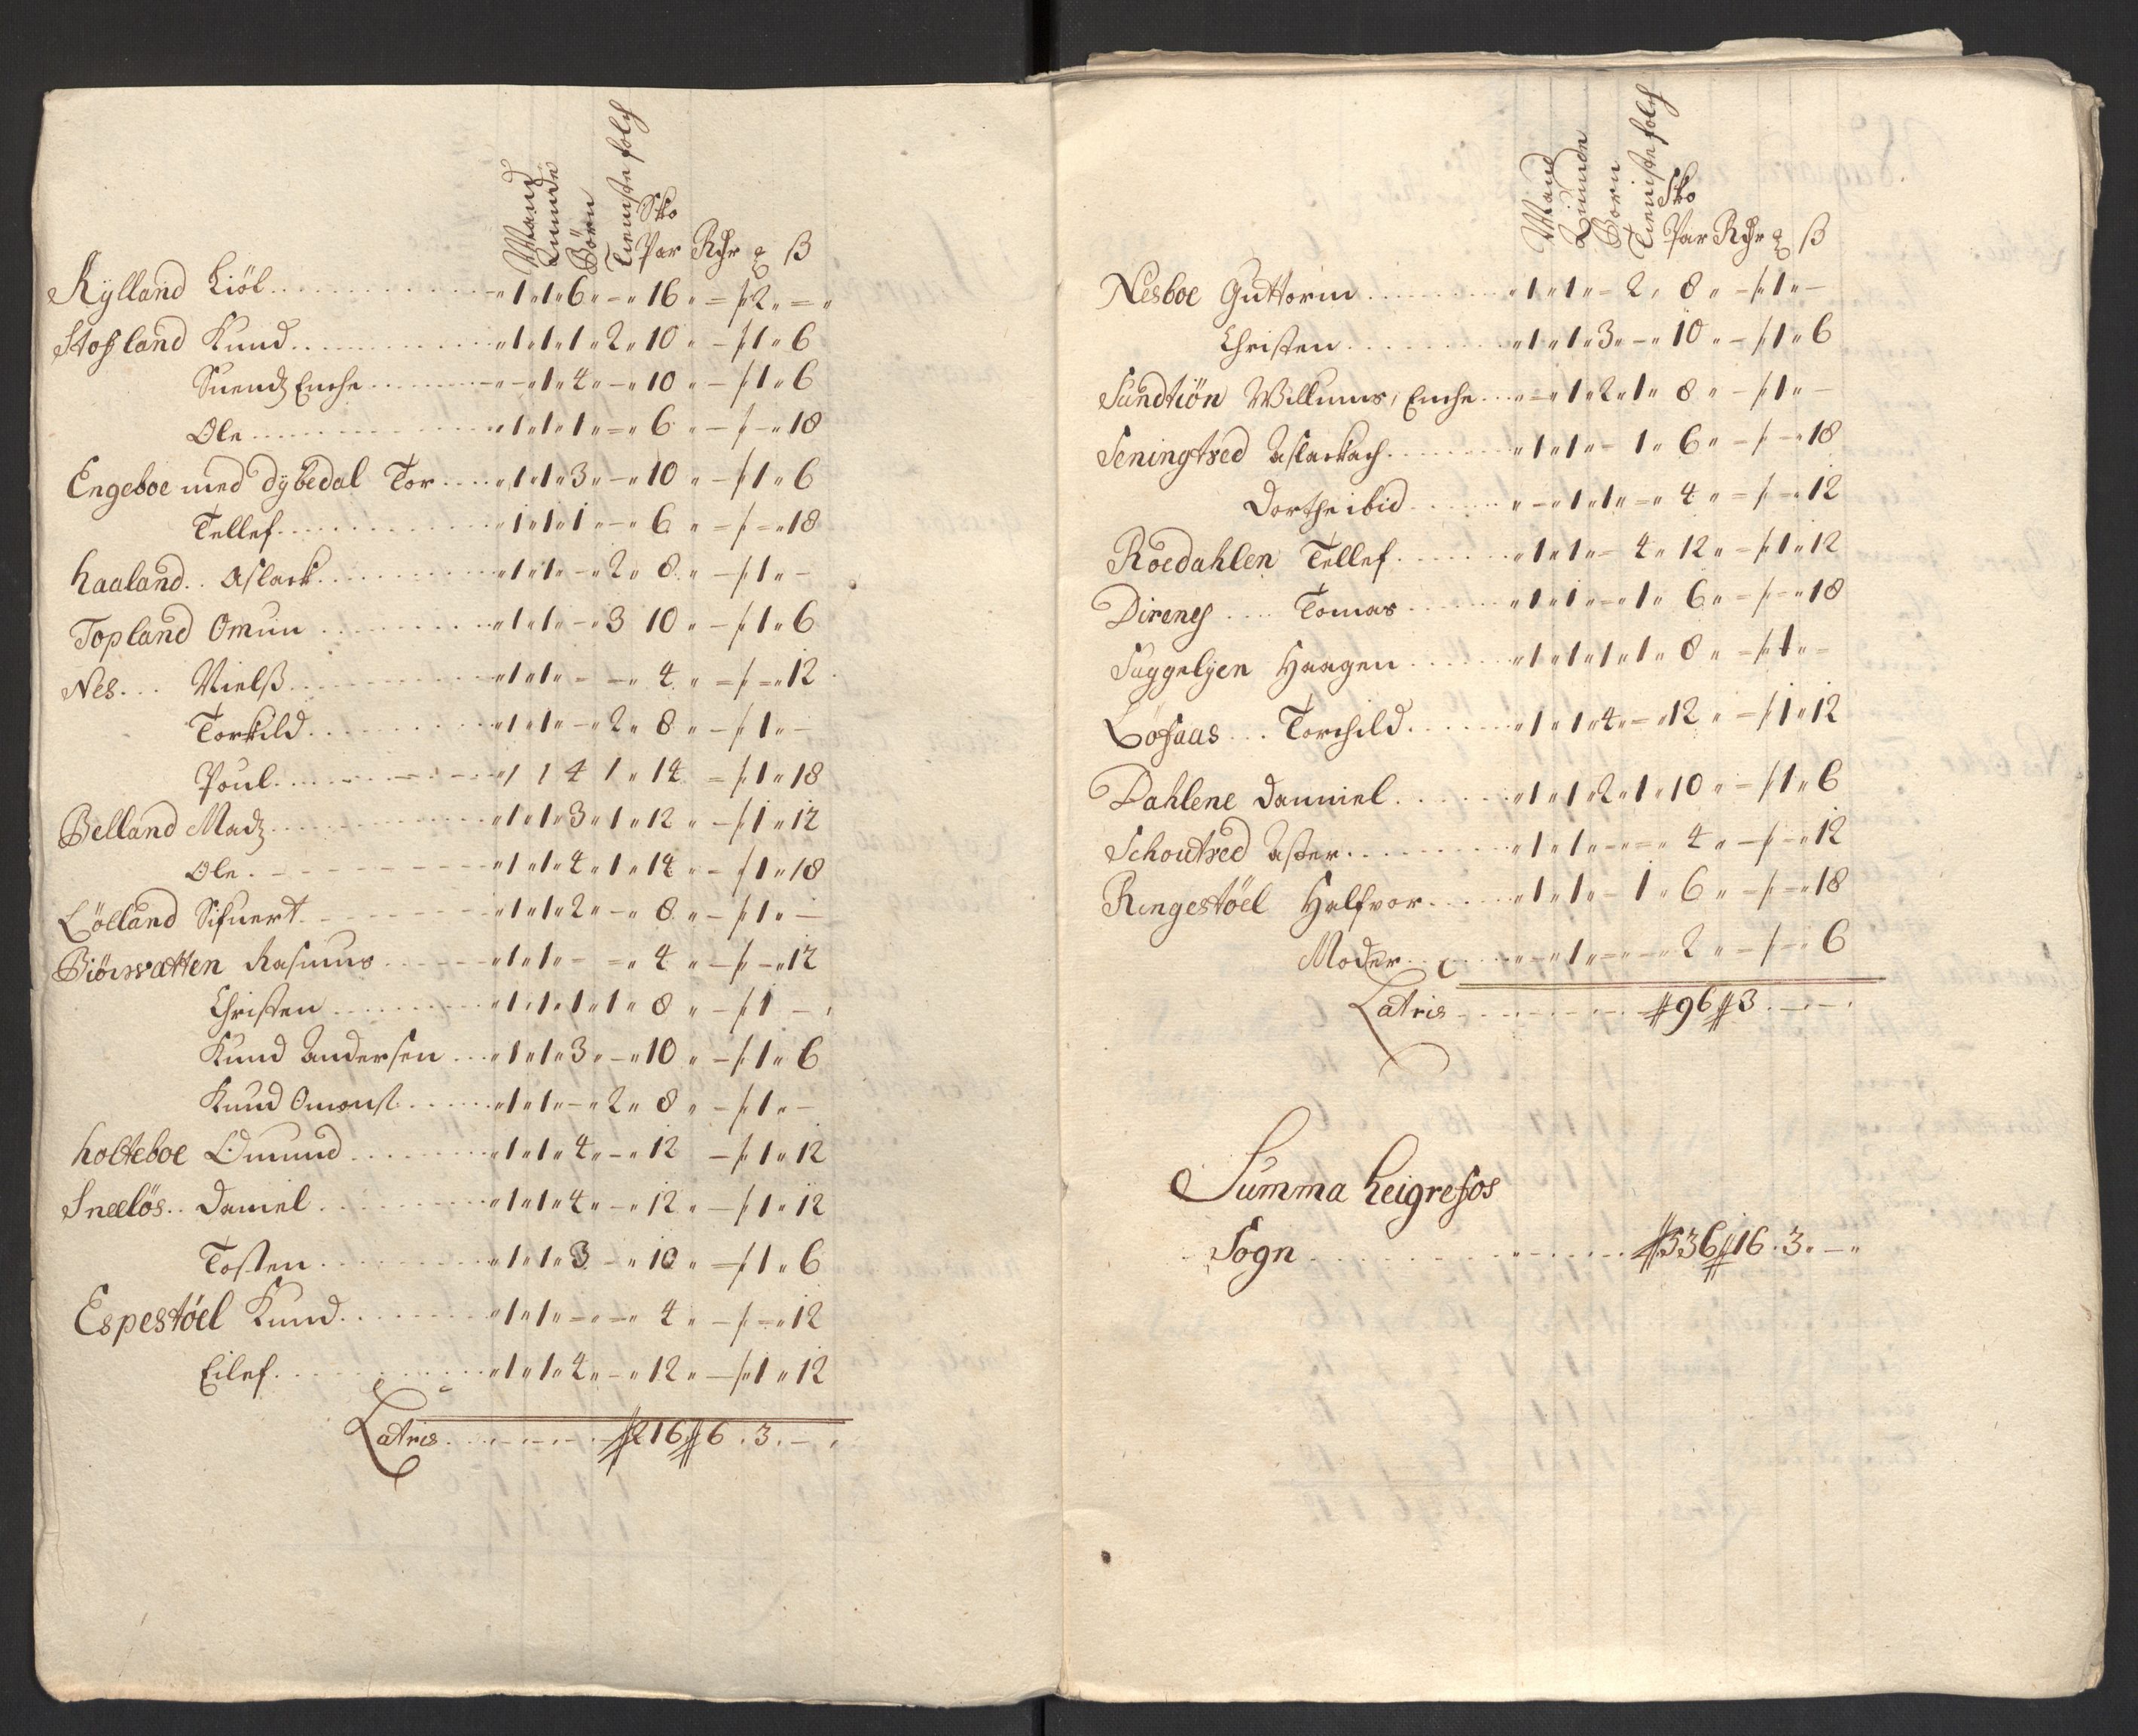 Mand Quinde Börn Tieniste folch Sko Par Rdr ß
Rylland Kiöl 1 1 6 – 16 – 2 –
Stosland Knud 1 1 1 2 10 – 1 6
Suends Enche – 1 4 – 10 – 1 6
Ole 1 1 1 – 6 – – 18
Engeboe med dybedal Tor 1 1 3 – 10 – 1 6
Tellef 1 1 1 – 6 – – 18
haaland Aslack 1 1 – 2 8 – 1 –
Topland Omun 1 1 – 3 10 – 1 6
Nes Nielß 1 1 – – 4 – – 12
Torkild 1 1 – 2 8 – 1 –
Poul 1 1 4 1 14 – 1 18
Belland Madz 1 1 3 1 12 – 1 12
Ole 1 1 4 1 14 – 1 18
Lölland Sifuert 1 1 2 – 8 – 1 –
Biörvatten Rasmus 1 1 – – 4 – – 12
Christen 1 1 1 1 8 – 1 –
Knud Andersen 1 1 3 – 10 – 1 6
Knud Omonst 1 1 – 2 8 – 1 –
holteboe Omund 1 1 4 – 12 – 1 12
Sneelös Daniel 1 1 4 – 12 – 1 12
Tosten 1 1 3 – 10 – 1 6
Espestöel Knud 1 1 – – 4 – – 12
Eilef 1 1 4 – 12 – 1 12
Latris 216 6 3 –
Mand Quinde Börn Tieniste folch Sko Par Rdr ß
Nesboe Guttorm 1 1 – 2 8 – 1 –
Christen 1 1 3 – 10 – 1 6
Sundtiön Willums Enche – 1 2 1 8 – 1 –
Seningtred Aslackach 1 1 – 1 6 – – 18
Dorthe ibid – 1 1 – 4 – – 12
Roedahlen Tellef 1 1 – 4 12 – 1 12
Direnes Tomas 1 1 – 1 6 – – 18
Suggelien Haagen 1 1 1 1 8 – 1 –
Löfaas Torchild 1 1 4 – 12 – 1 12
Dahlene Danniel 1 1 2 1 10 – 1 6
Schoutred Asser 1 1 – – 4 – – 12
Ringestöel Halfvor 1 1 – 1 6 – – 18
Moder – 1 – – 2 – – 6
Latris 96 3 – –
Summa heigrefos
Sogn 336 16 3 –